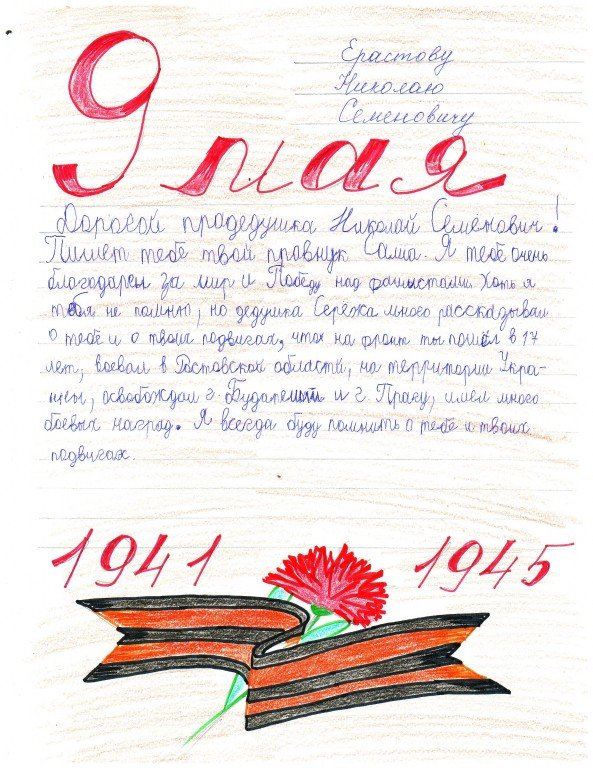 Ерастову
Николаю
Семеновичу
9 мая
Дорогой прадедушка Николай Семенович!
Пишет тебе твой правнук Саша. Я тебе очень
благодарен за мир и Победу над фашистами. Хоть я
тебя не помню, но дедушка Серёжа много рассказывал
о тебе и о твоих подвигах, что на фронт ты пошёл в 17
лет, воевал в Ростовской области, на территории Укра-
ины, освобождал г. Будапешт и г. Прагу, имел много
боевых наград. Я всегда буду помнить о тебе и твоих
подвигах.
1941 1945